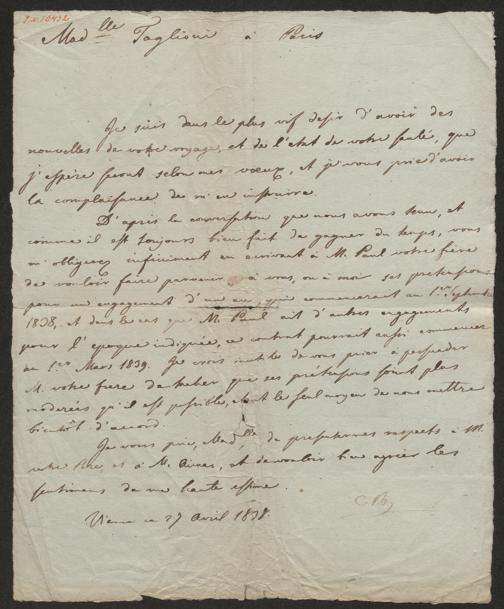 Mad.lle Taglioni à Paris
Je suis dans le plus vif desir d'avoir des
nouvelles de votre voyage, et de l'état de votre santé, que
j'espère seront selon mes vœux, et je vous prie d'avoir
la complaisance de m'en instruire.
D'après la conversation que nous avons tenu, et
comme il est toujours bien fait de gagner du temps, vous
m'obligerez infiniment en écrivant à M. Paul votre frère
de vouloir faire parvenir à vous, ou à moi ses prétensions
pour un engagement d'un an, qui commencerait au 1er Septembre
1838, et dans le cas que M. Paul ait d'autres engagements
pour l'époque indiquée, ce contrat pourrait aussi commencer
au 1er Mars 1839. Je crois inutile de vous prier à persuader
M. votre frere de tacher que ses prétensions soint plus
moderées qu'il est possible, étant le seul moyen de nous mettre
bientôt d'accord.
Je vous prie, Mad.lle de présenter mes respects à M.
votre Père, et à M. et de vouloir bien agréer les
sentimens de ma haute estime.
Vienne ce 27 Avril 1838.